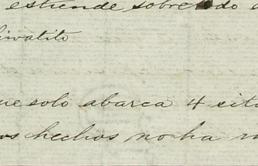 estiende sobre todo
que solo abarca 4 sit
os hechos no ha